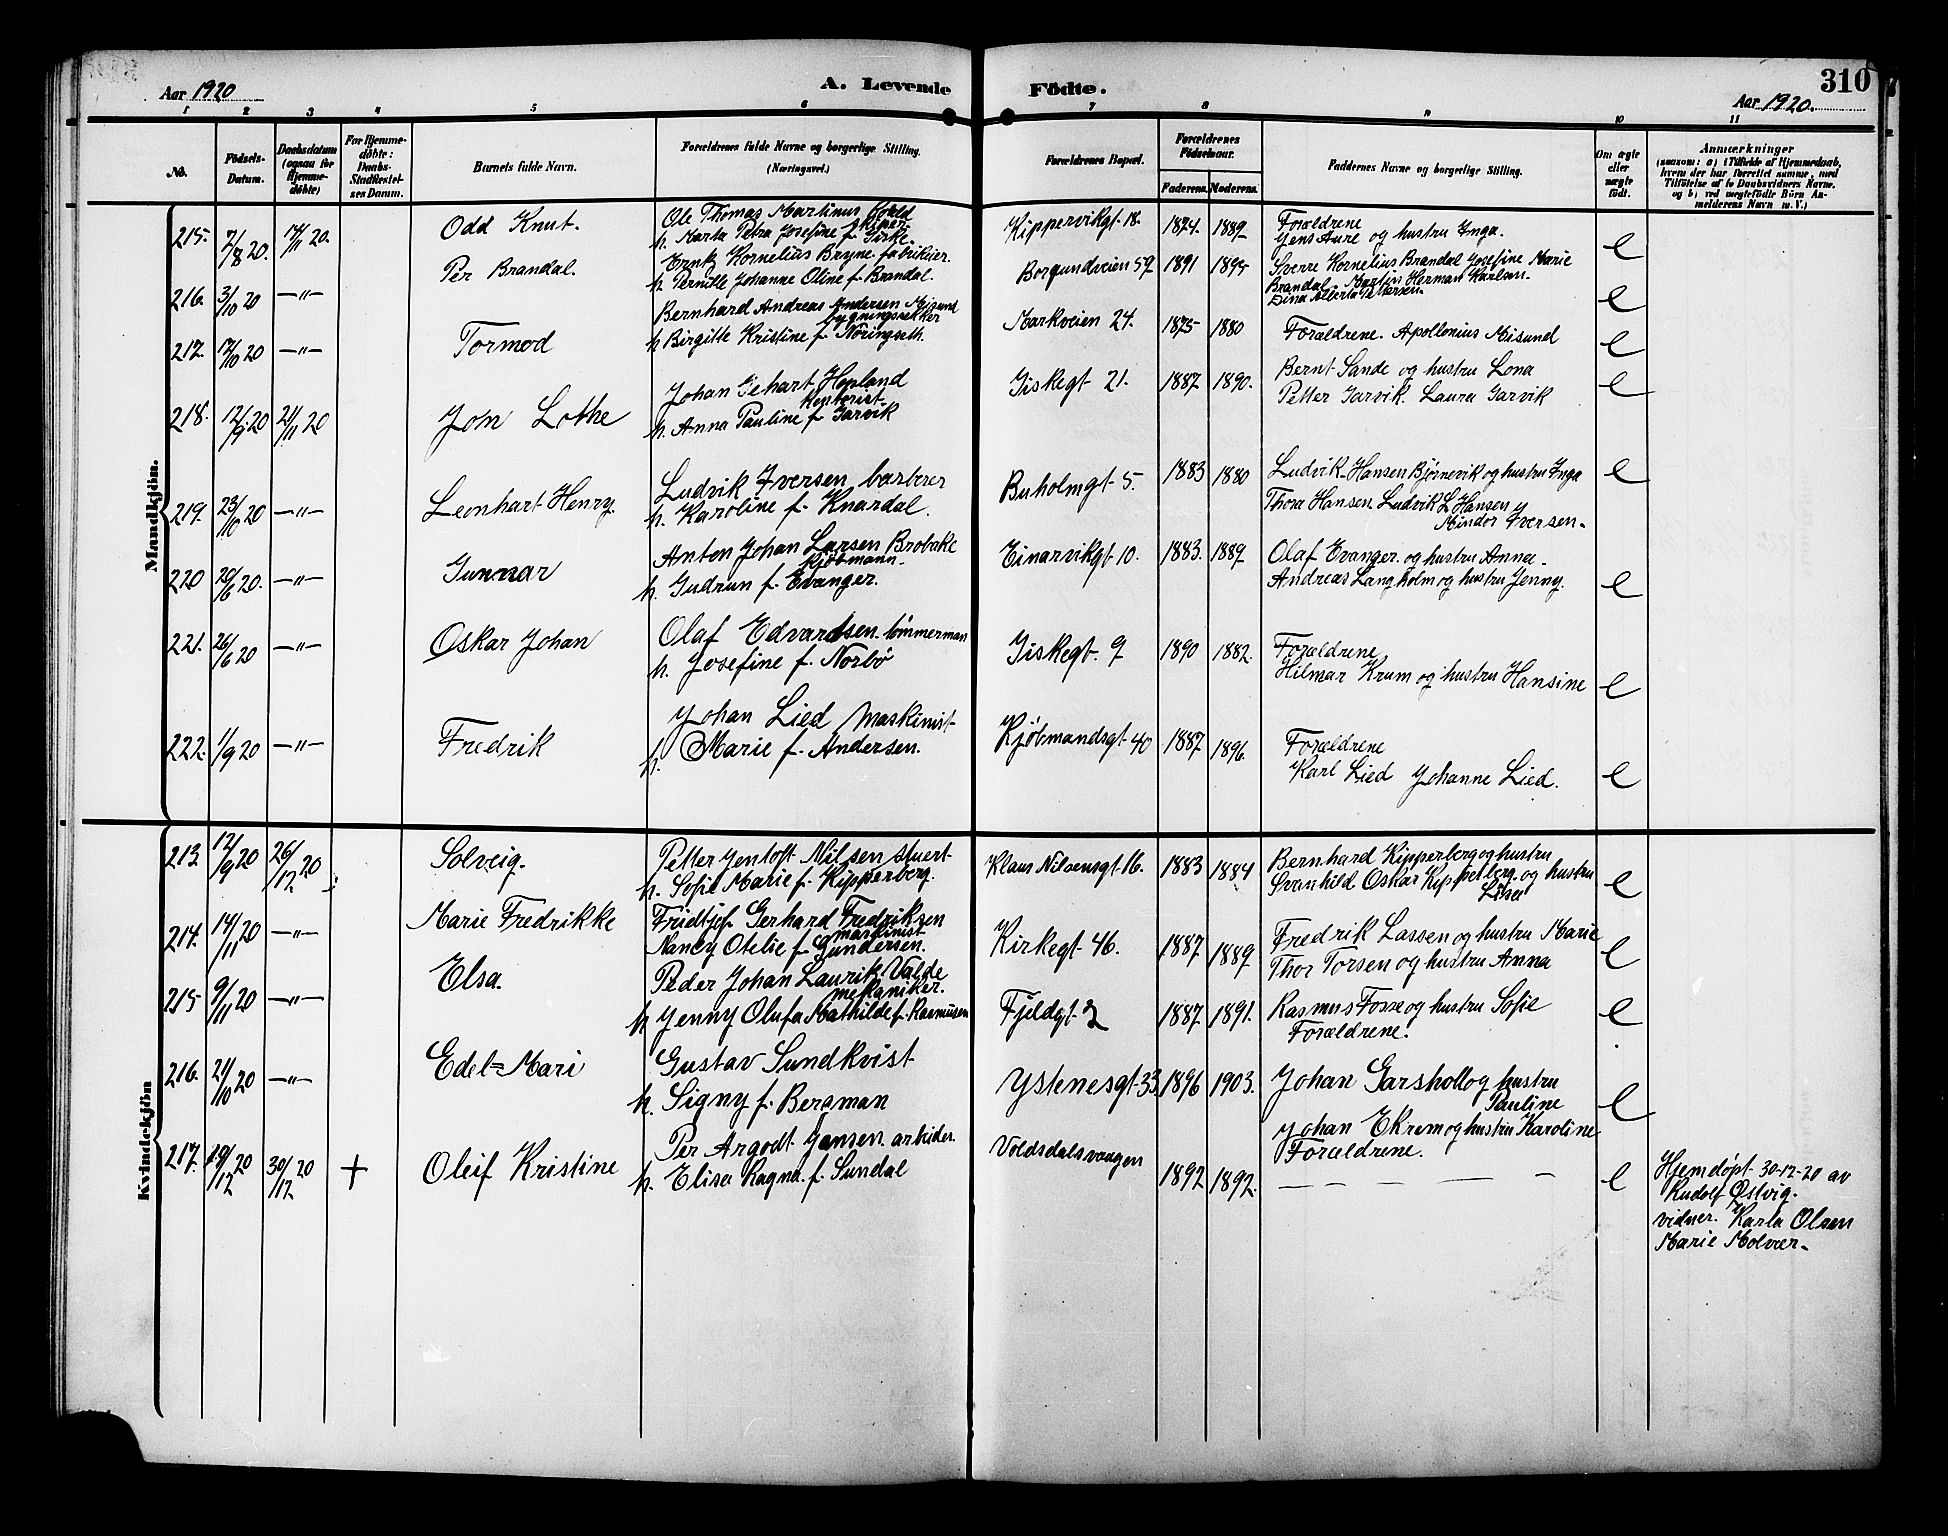 Aar 1920
A. Levende
Födte.
310
Aar 1920.
1 2 3 4 5 6 7 8 9 10 11
No.
Födsels-Datum.
Daabsdatum (ogsaa for Hjemme-döbte)
For Hjemme-döbte: Daabs-Stadfæstel-ses Datum.
Barnets fulde Navn.
Forældrenes fulde Navne og borgerlige Stilling. (Næringsvei.)
Forældrenes Bopæl.
Forældrenes Födselsaar.
Faderens. Moderens.
Faddernes Navne og borgerlige Stilling.
Om ægte eller uægte født.
Anmærkninger
(saasom: a) i Tilfælde af Hjemmedaab, hvem der har forrettet samme, med Tilföielse af to Daabsvidners Navne, og b) ved uægtefödte Börn An-melderens Navn m. V.)
Mandkjön.
215. 7/8 20. 14/11 20. Odd Knut. Ole Thomas Martinus
h. Marta Petra Josefine f. Giske. Kippervikgt 18. 1874. 1889 Forældrene
Jens Aure og hustru Inga. e
216. 3/10 20 —"— Per Brandal. Kornelius Bryne fabrikeier.
h. Pernille Johanne Oline f. Brandal. Borgundveien 59 1891 1895 Sverre Kornelius Brandal Josefine Marie
Brandal. Martin Herman Karlsen. e
217. 12/10 20 —"— Tormod Bernhard Andreas Andersen Misund
bygningssnekker
h. Birgitte Kristine f. Nøringseth. Markveien 24. 1875 1880 Forældrene. Apollonius Misund e
218. 12/9 20 21/11 20 Jon Lothe Johan Gehart Hopland
Kontorist
h. Anna Pauline f. Garvik Giskegt 21. 1887 1890. Bernt Sande og hustru Lona
Petter Garvik. Laura Garvik e
219. 23/10 20 —"— Leonhart Henry. Ludvik Iversen, barberer
h. Karoline f. Knardal. Buholmgt 5. 1883 1880 Ludvik Hansen Bjørnevik og hustru Inga
Thora Hansen. Ludvik L Hansen
Mindor Iversen. e
220 20/6 20. —"— Gunnar Anton Johan Larsen Brobake
kjøbmann.
h. Gudrun f. Evanger. Einarvikgt 10. 1883. 1889 Olaf Evanger. og hustru Anna.
Andreas Langholm og hustru Jenny. e
221. 26/6 20 —"— Oskar Johan Olaf Edvardsen tømmerman
h. Josefine f. Norbø Giskegt. 9 1890 1882. Forældrene
Hilmar Krum og hustru Hansine e
222. 1/9 20 —"— Fredrik Johan Lied Maskinist
h. Marie f. Andersen. Kjøbmandsgt 40 1887 1896. Forældrene
Karl Lied Johanne Lied. e
Kvindekjön
213. 12/9 20 26/12 20 Solveig. Petter Jentoft Nilsen stuert
h. Sofie Marie f. Kipperberg. Klaus Nilsensgt 16. 1883 1884 Bernhard Kipperberg og hustru
Svanhild Oskar Kipperberg. og hustru e
214. 14/11 20 —"— Marie Fredrikke Fridtjof Gerhard Fredriksen
maskinist
Nancy Otelie f. Gundersen. Kirkegt 46. 1887 1889 Fredrik Lassen og hustru Marie
Thor Torsen og hustru Anna e
215 9/11 20 —"— Elsa. Peder Johan Laurik Valde
mekaniker.
h. Jenny Olufa Mathilde f. Rasmusen Fjeldgt 2 1887 1891. Rasmus Fosse og hustru Sofie
Forældrene. e
216. 21/10 20 —"— Edel=Mari Gustav Sundkvist
h. Signy f. Bergman Ystenesgt 33. 1896 1903. Johan Garsholl og hustru
Pauline
Johan Ekrem og hustru Karoline
Forældrene. e
217. 19/12 20 30/12 20 + Oleif Kristine Per Argodt Jensen. arbeider.
h. Elise Ragna. f. Sundal Voldsdalsvangen 1892 1892. — — — — — — e Hjemdøpt 30-12-20 av
Rudolf Østvig.
vidner. Karla Olsen
Marie Molvær.